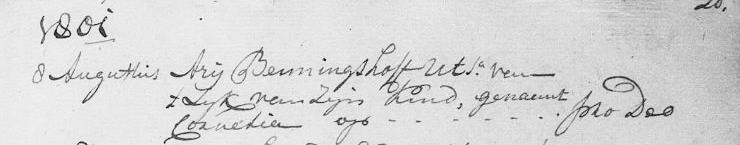 20.
1801
8 Augustus Arij Benningshoff Uts.a van
t Lyk van Zijn Kind, genaemt
Cornelia op - - - - - - pro Deo